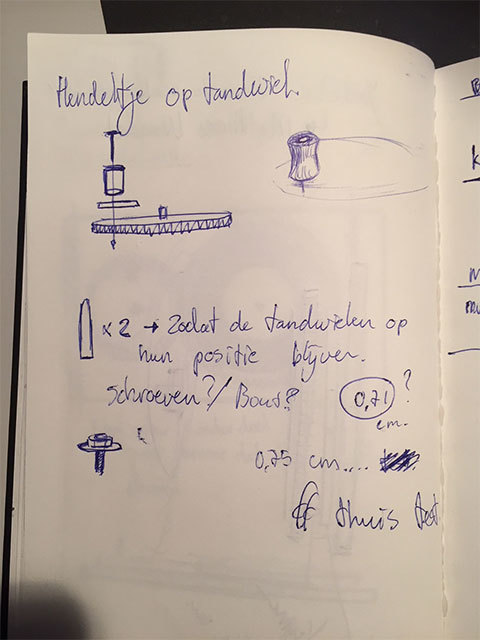 Hendeltje op tandwiel.
x 2 → Zodat de tandwielen op
hun positie blijven.
Schroeven?/ Bout?
0,71 ?
cm.
0,75 cm....
thuis